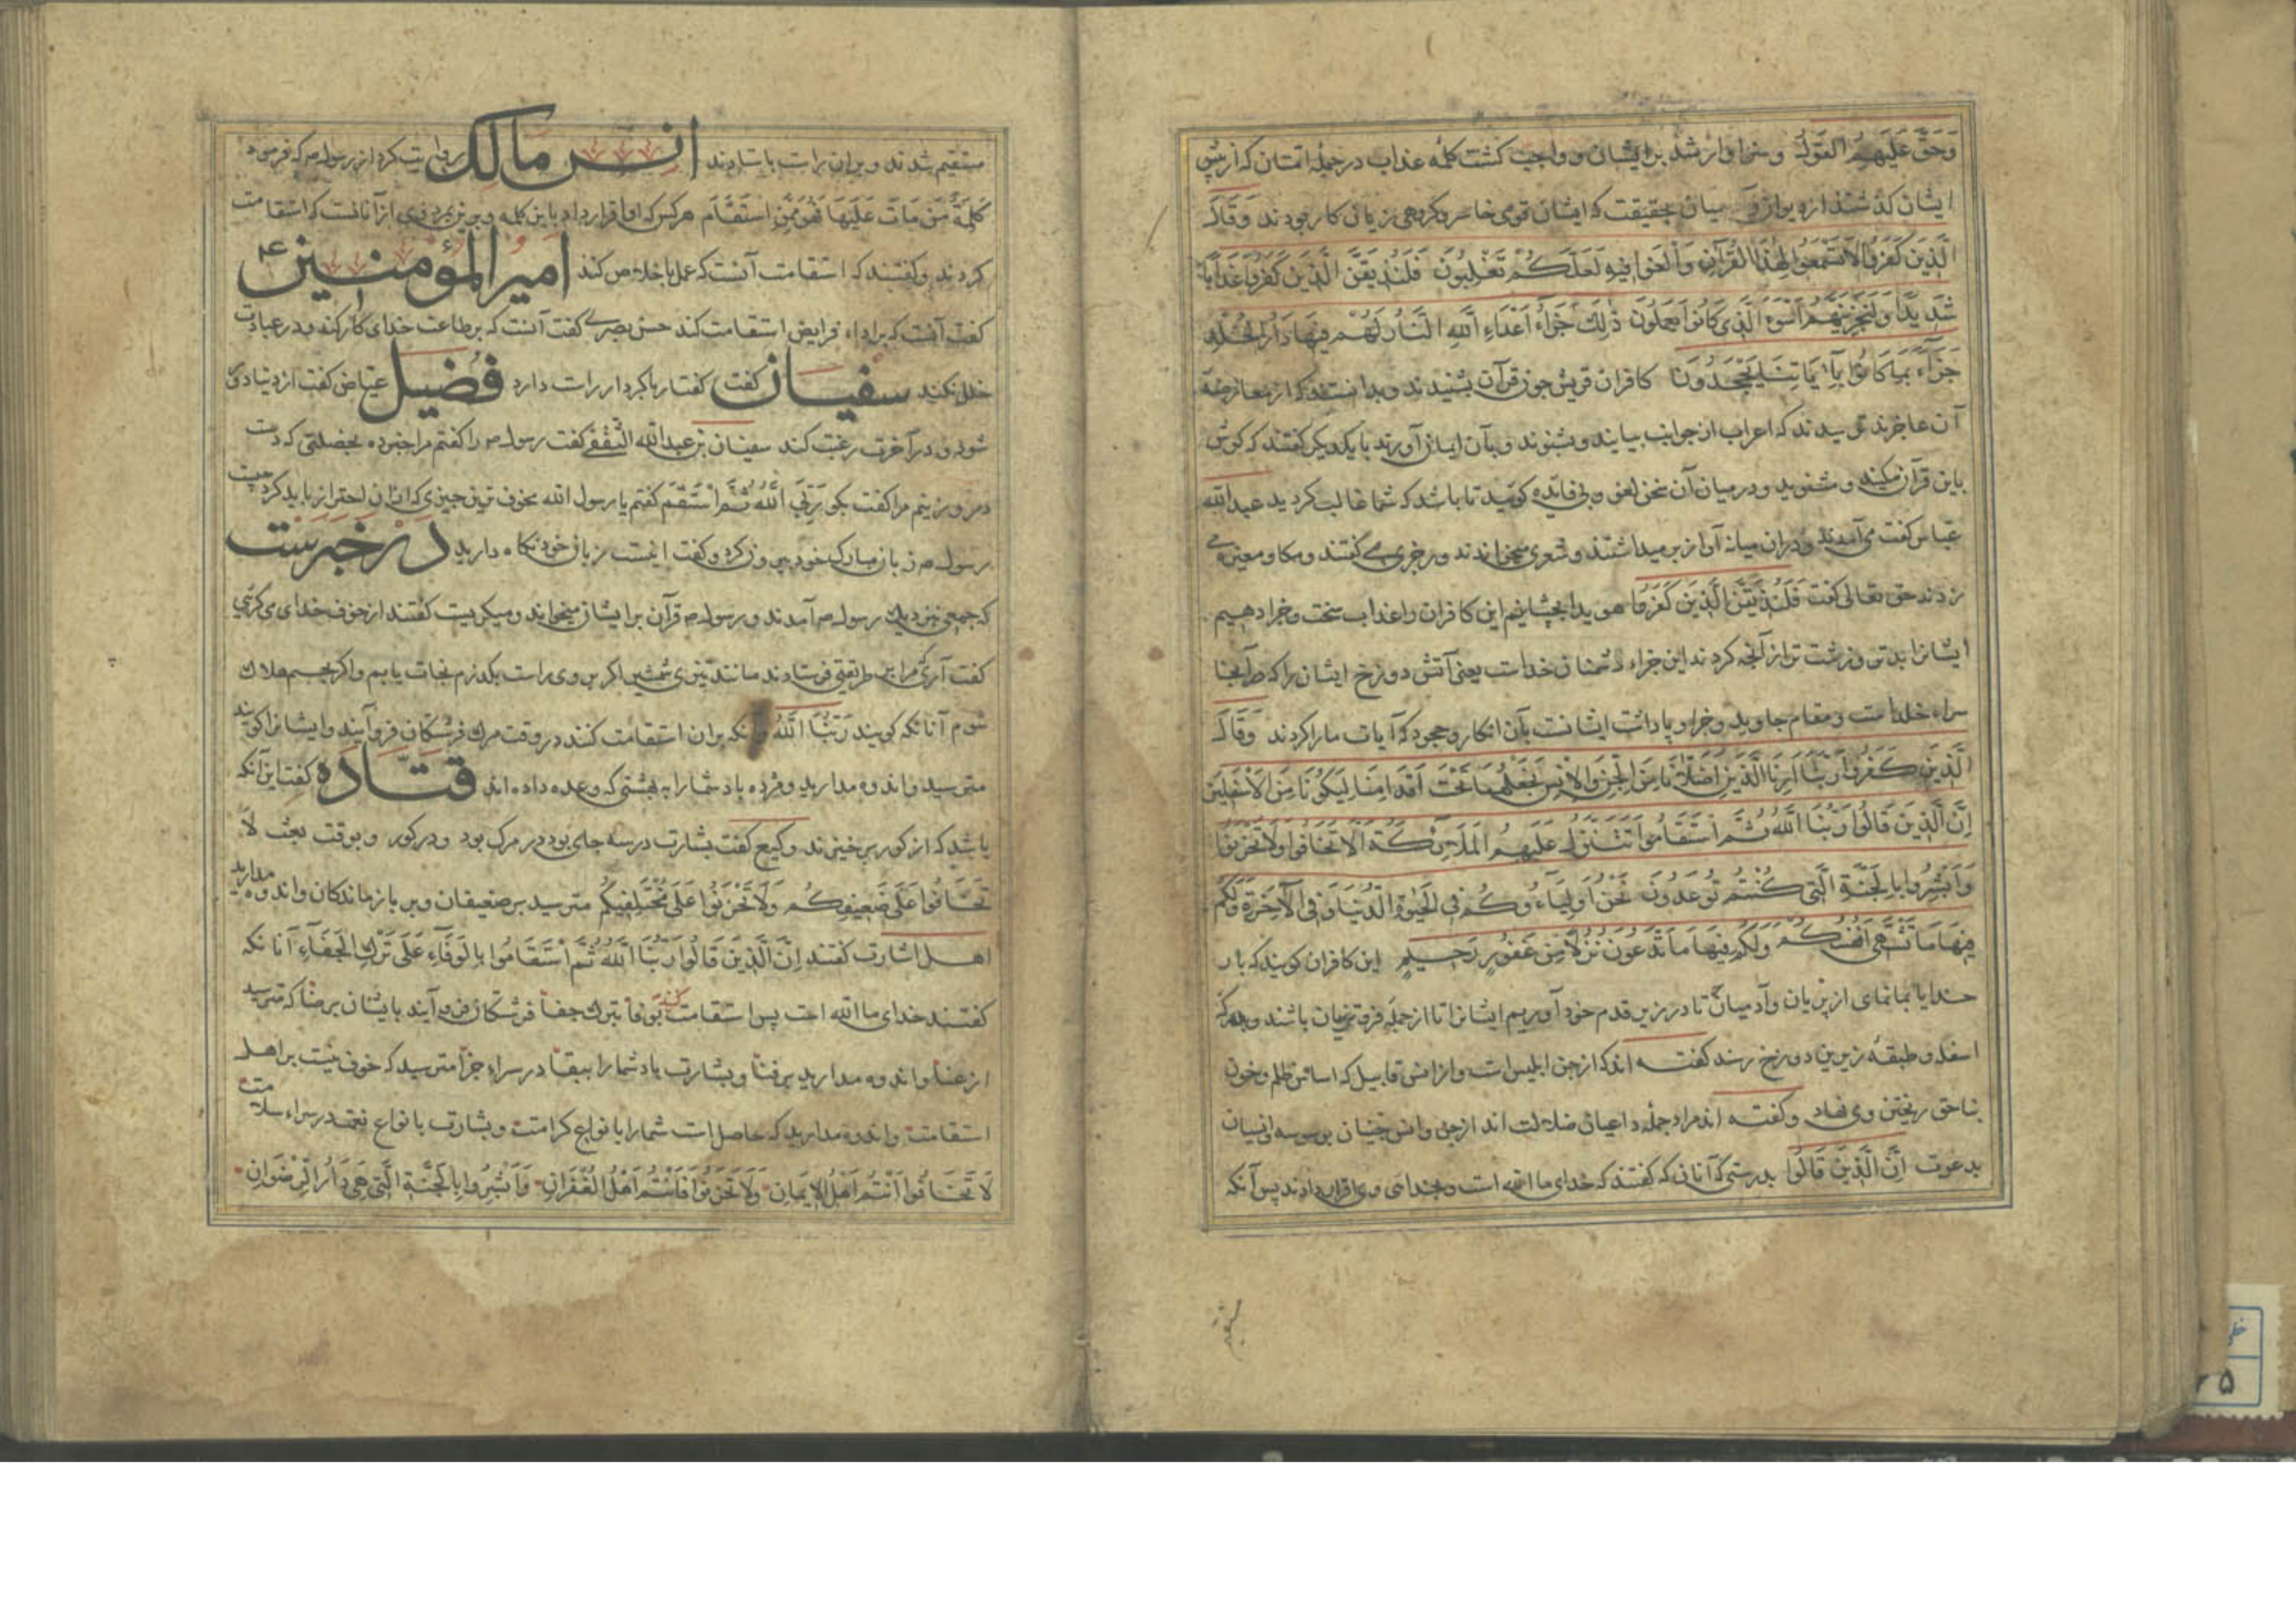 وَحَقَّ عَلَيْهِمُ الْقَوْلُ و سزاوار شد بر ایشان و واجب کشت کلمه عذاب در جمله امتان که از پیش
ایشان کذشتند از دیوان و آدمیان بحقیقت که ایشان قومی خاسر و کروهی زیان کار بودند وَقَالَ
الَّذِينَ كَفَرُوا لَا تَسْمَعُوا لِهَذَا الْقُرْآنِ وَالْغَوْا فِيهِ لَعَلَّكُمْ تَغْلِبُونَ فَلَنُذِيقَنَّ الَّذِينَ كَفَرُوا عَذَابًا
شَدِيدًا وَلَنَجْزِيَنَّهُمْ أَسْوَءَ الَّذِي كَانُوا يَعْمَلُونَ ذَلِكَ جَزَاءُ أَعْدَاءِ اللَّهِ النَّارُ لَهُمْ فِيهَا دَارُ الْخُلْدِ
جَزَاءً بِمَا كَانُوا بِآيَاتِنَا يَجْحَدُونَ کافران قریش چون قرآن بشنیدند و بدانستند که از معارضه
آن عاجزند ترسیدند که اعراب از جوانب بیایند و بشنوند و بآن ایمان آورند با یکدیکر کفتند که کوش
باین قرآن مکنید و مشنوید و در میان آن سخن لغو و بی فایده کوئید تا باشد که شما غالب کردید عبدالله
عباس کفت می آمدند و دران میانه آواز برمیداشتند و شعری میخواندند و رجزی می کفتند و مکا و صفیر می
زدند حق تعالی کفت فَلَنُذِيقَنَّ الَّذِينَ كَفَرُوا هویدا بچشانیم این کافران را عذاب سخت و جزا دهیم
ایشانرا بدتر و زشت تر از آنچه کردند این جزاء دشمنان خداست یعنی آتش دوزخ ایشان را که در آنجا
سراء خلد است و مقام جاوید و جزا و پاداشت ایشانست بآن انکار و جحود که آیات ما را کردند وَقَالَ
الَّذِينَ كَفَرُوا رَبَّنَا أَرِنَا الَّذَيْنِ أَضَلَّانَا مِنَ الْجِنِّ وَالْإِنْسِ نَجْعَلْهُمَا تَحْتَ أَقْدَامِنَا لِيَكُونَا مِنَ الْأَسْفَلِينَ
إِنَّ الَّذِينَ قَالُوا رَبُّنَا اللَّهُ ثُمَّ اسْتَقَامُوا تَتَنَزَّلُ عَلَيْهِمُ الْمَلَائِكَةُ أَلَّا تَخَافُوا وَلَا تَحْزَنُوا
وَأَبْشِرُوا بِالْجَنَّةِ الَّتِي كُنْتُمْ تُوعَدُونَ نَحْنُ أَوْلِيَاؤُكُمْ فِي الْحَيَوةِ الدُّنْيَا وَفِي الْآخِرَةِ وَلَكُمْ
فِيهَا مَا تَشْتَهِي أَنْفُسُكُمْ وَلَكُمْ فِيهَا مَا تَدَّعُونَ نُزُلًا مِنْ غَفُورٍ رَحِيمٍ این کافران کویند که بار
خدایا بما نمای از پریان و آدمیان تا در زیر قدم خود آوریم ایشانرا تا از جمله فروتران باشند
اسفل و طبقه زیرین دوزخ رسند کفته اند که از جن ابلیس است و از انس قابیل که اساس ظلم و خون
بناحق ریختن وی نهاد و کفته اند مراد جمله داعیان ضلالت اند از جن و انس جنیان بوسوسه و انسیان
بدعوت إِنَّ الَّذِينَ قَالُوا بدرستی که آنانی که کفتند که خدای ما الله است و بخدائی وی اقرار دادند پس آنکه
مستقیم شدند و بران راست باستادند انس مالک روایت کرد از رسول ص که فرمود
كَلِمَةٌ مَنْ مَاتَ عَلَيْهَا فَهُوَ مِمَّنِ اسْتَقَامَ هر کس که او اقرار داد باین کلمه و برین بمرد وی از آنانست که استقامت
کردند و کفتند که استقامت آنست که عمل باخلاص کند امیر المؤمنین ع
کفت آنست که بر اداء فرایض استقامت کند حسن بصری کفت آنست که بر طاعت خدای کار کند و در عبادت
خلل نکند سفیان کفت کفتار با کردار راست دارد فضیل عیاض کفت از دنیا دور
شود و در آخرت رغبت کند سفیان بن عبدالله الثقفی کفت رسول ص را کفتم مرا خبر ده بخصلتی که دست
درو زنم مرا کفت بکو رَبِّيَ اللَّهُ ثُمَّ اسْتَقِمْ کفتم یا رسول الله مخوف ترین چیزی که ازان احتراز باید کرد چیست
رسول ص زبان مبارک خود بیرون کرد و کفت اینست زبان خود نکاه دارید در خبرست
که جمعی نزدیک رسول ص آمدند و رسول ص قرآن بر ایشان میخواند و میکریست کفتند از خوف خدای می کریی
کفت آری مرا بر طریقتی فرستادند مانند تیزی شمشیر اکر بر وی راست بکذرم نجات یابم و اکر بچسبم هلاک
شوم آنانکه کویند رَبُّنَا اللَّهُ وانکه بران استقامت کنند در وقت مرک فرشتکان فرو آیند و ایشانرا کویند
مترسید و اندوه مدارید و مژده باد شما را به بهشتی که وعده داده اند قتاده کفت این آنکه
باشد که از کور برخیزند وکیع کفت بشارت در سه جای بود در مرک بود و در کور و بوقت بعث لَا
تَخَافُوا عَلَى ضَعِيفِكُمْ وَلَا تَحْزَنُوا عَلَى مُخَلَّفِيكُمْ مترسید بر ضعیفان و بر بازماندکان و اندوه مدارید
اهل اشارت کفتند إِنَّ الَّذِينَ قَالُوا رَبُّنَا اللَّهُ ثُمَّ اسْتَقَامُوا بِالْوَفَاءِ عَلَى تَرْكِ الْجَفَاءِ آنانکه
کفتند خدای ما الله است پس استقامت کنند بر وفا بترک جفا فرشتکان فرو آیند بایشان برضا که مترسید
از عنا و اندوه مدارید بر فنا و بشارت باد شما را ببقا در سراء جزا مترسید که خوف نیست بر اهل
استقامت و اندوه مدارید که حاصل است شما را بانواع کرامت و بشارت بانواع نعمت در سراء سلامت
لَا تَخَافُوا أَنْتُمْ أَهْلُ الْإِيمَانِ وَلَا تَحْزَنُوا فَأَنْتُمْ أَهْلُ الْغُفْرَانِ وَأَبْشِرُوا بِالْجَنَّةِ الَّتِي هِيَ دَارُ الرِّضْوَانِ